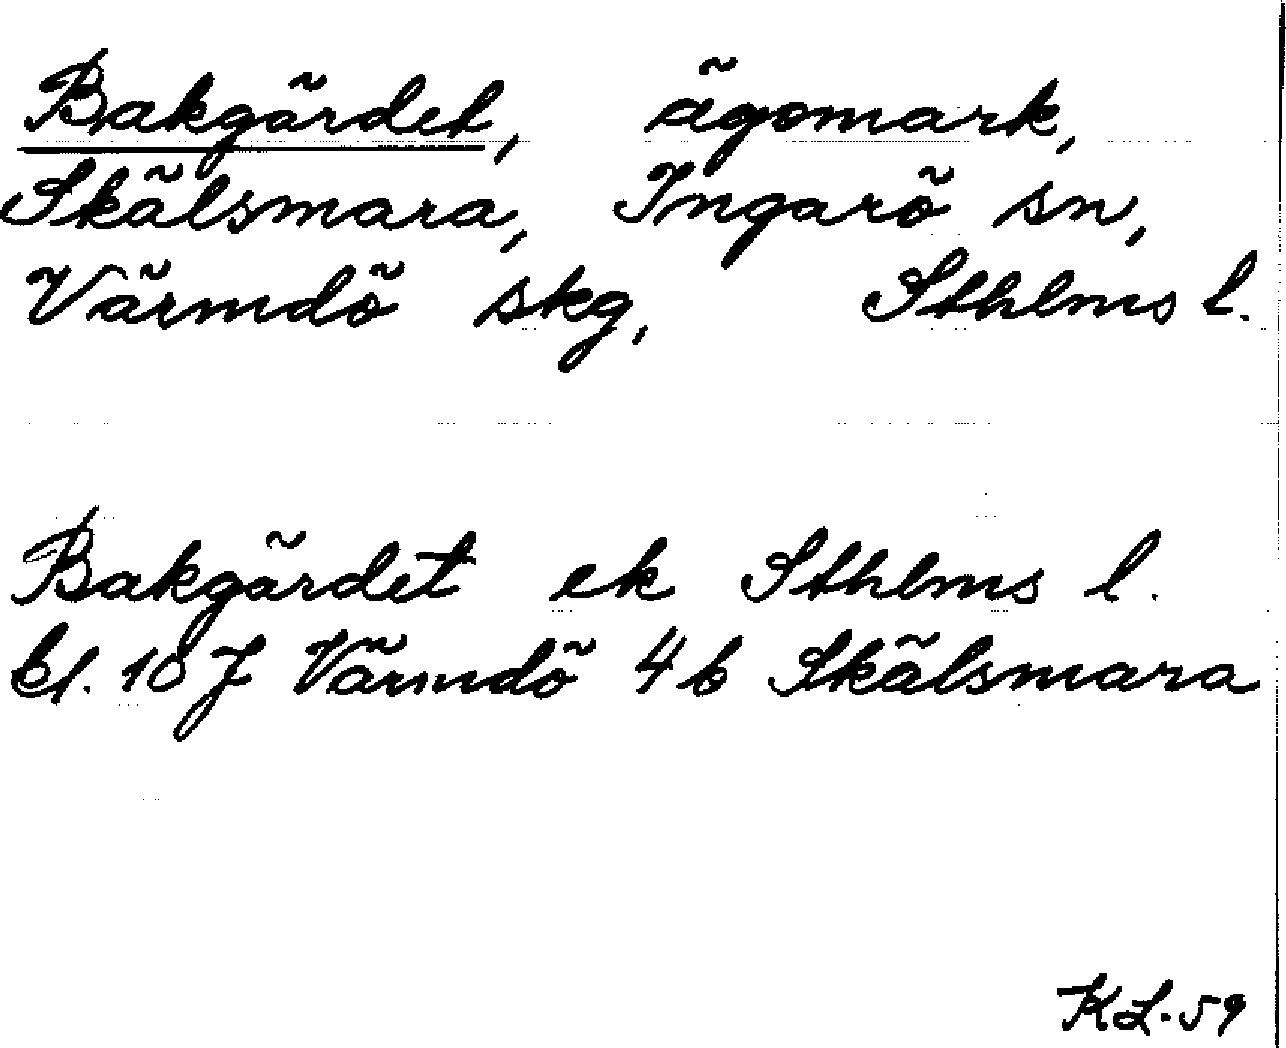 Bakgärdet, ägomark,
Skälsmara, Ingarö sn,
Värmdö skg, Sthlms l.
Bakgärdet ek Sthlms l.
bl. 10 J Värmdö 4 b Skälsmara
KL. 59